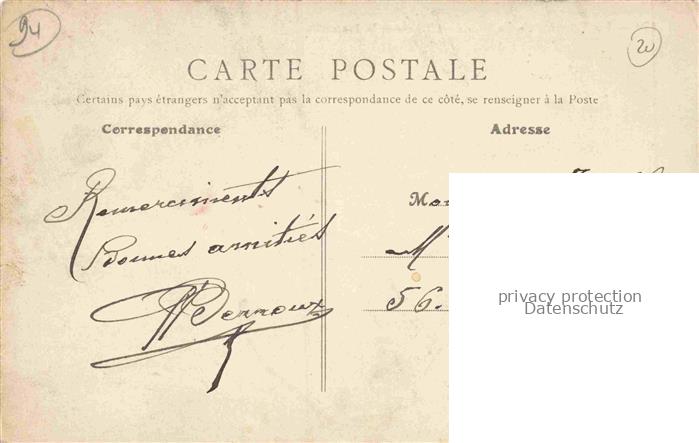 94
20
CARTE POSTALE
Certains pays étrangers n'acceptant pas la correspondance de ce côté, se renseigner à la Poste
Correspondance
Adresse
Remerciments
Bonnes amitiés
M
56.
privacy protection
Datenschutz